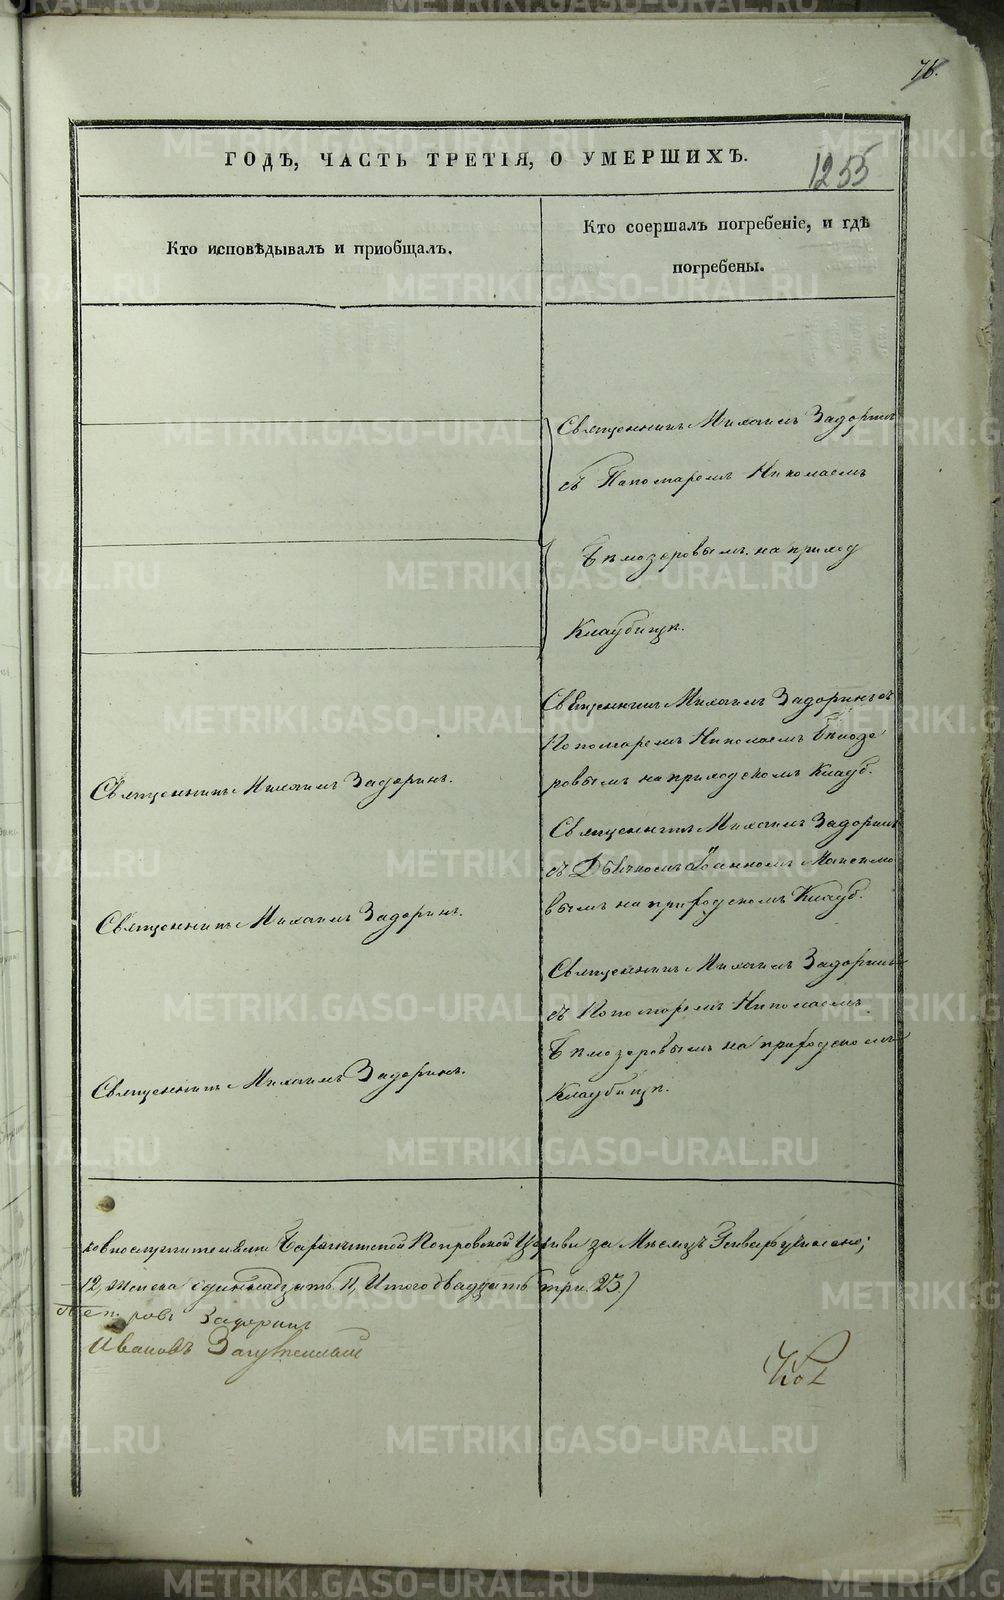 76.
ГОДЪ, ЧАСТЬ ТРЕТІЯ, О УМЕРШИХЪ.
1255
Кто исповѣдывалъ и приобщалъ.
Кто соершалъ погребеніе, и гдѣ
погребены.
Священникъ Михаилъ Задоринъ
съ Пономаремъ Николаемъ
Бѣлозеровымъ на приход
Кладбищѣ.
Священникъ Михаилъ Задоринъ.
Священникъ Михаилъ Задоринъ съ
Пономаремъ Николаемъ Бѣлозе
ровымъ на приходскомъ Кладб.
Священникъ Михаилъ Задоринъ.
Священникъ Михаилъ Задоринъ
съ Дьячкомъ Максимо
вымъ на приходскомъ Кладб.
Священникъ Михаилъ Задоринъ.
Священникъ Михаилъ Задоринъ
съ Пономаремъ Николаемъ
Бѣлозеровымъ на приходскомъ
Кладбищѣ.
ковнослужителями Покровской Церкви за Мѣсяцъ Генварь
12, женска одиннадцать 11, Итого двадцать три 23)
Задоринъ
Ивановъ
METRIKI.GASO-URAL.RU